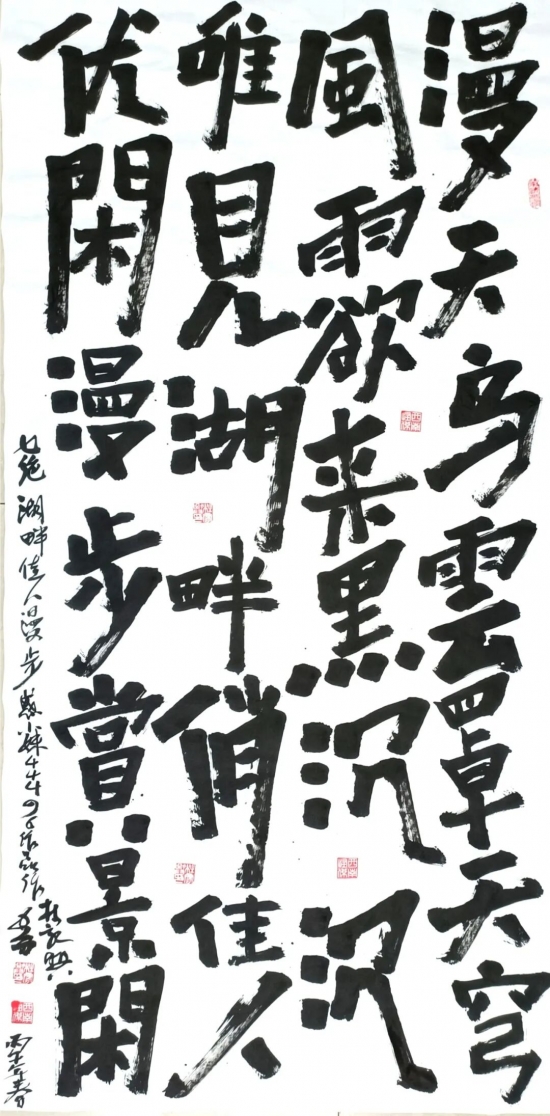 漫天乌雲罩天穹
風雨欲来黑沉沉
唯見湖畔俏佳人
优閑漫步賞景閑
七绝 湖畔佳人漫步
丙午年春